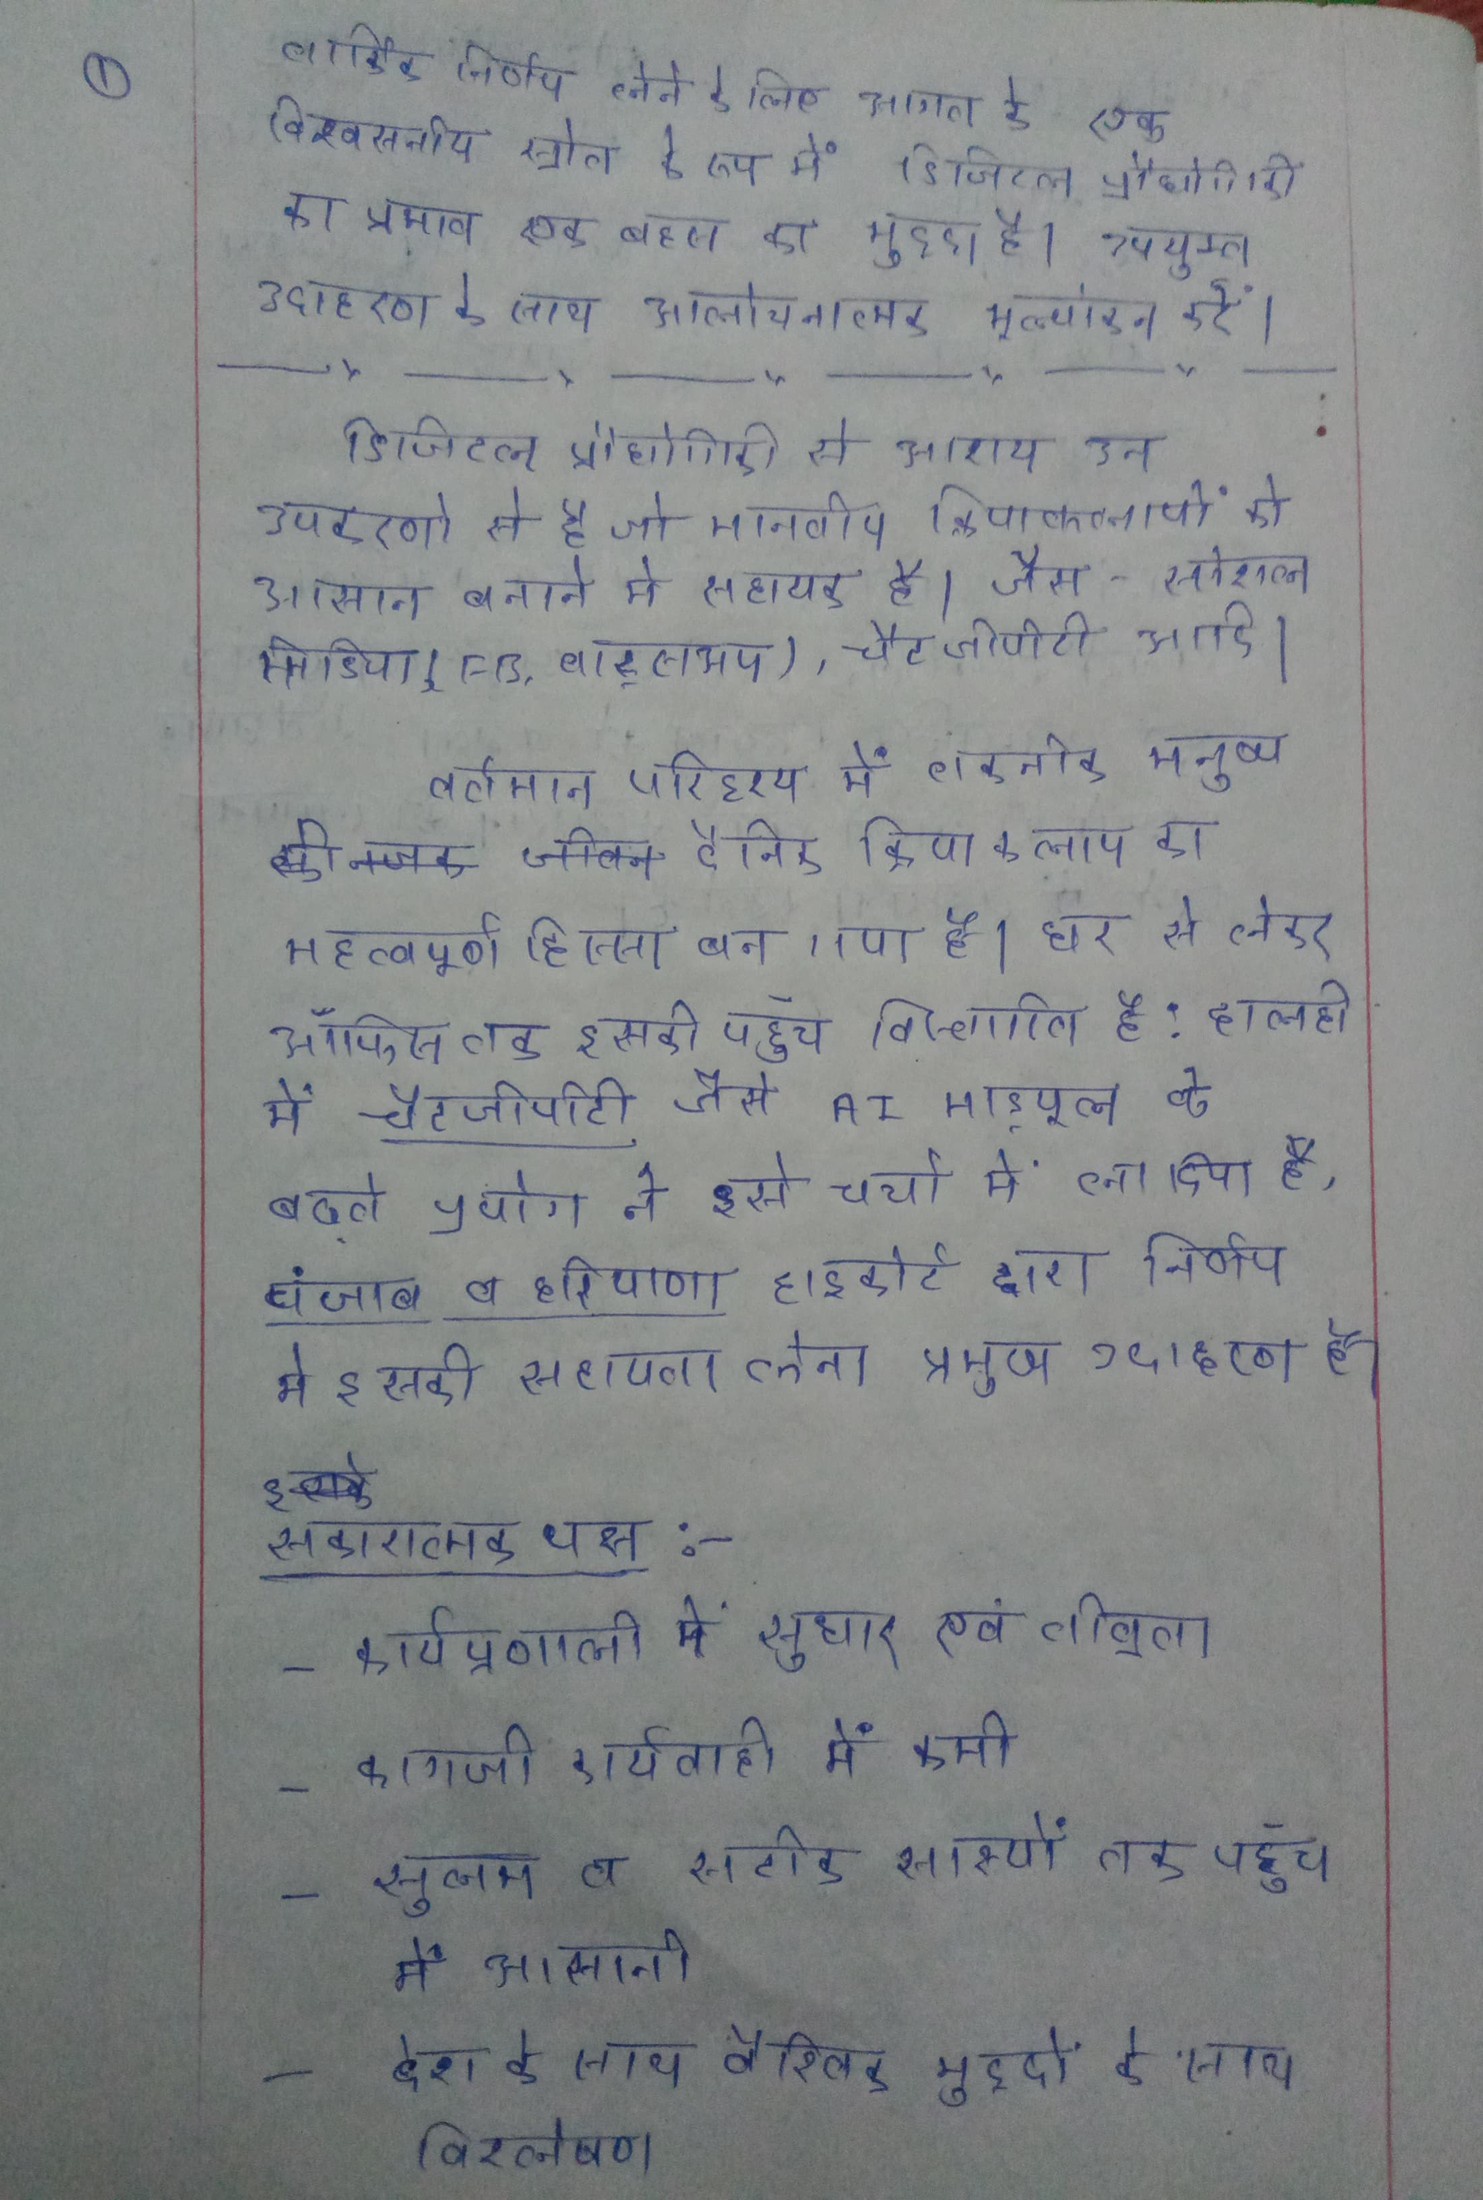 ①
तार्किक निर्णय लेने के लिए आगत के एक
विश्वसनीय स्रोत के रूप में डिजिटल प्रौद्योगिकी
का प्रभाव एक बहस का मुद्दा है। उपयुक्त
उदाहरण के साथ आलोचनात्मक मूल्यांकन करें।
डिजिटल प्रौद्योगिकी से आशय उन
उपकरणो से है जो मानवीय क्रियाकलापों को
आसान बनाने मे सहायक है। जैस - सोशल
मिडिया (FB, वाट्सअप), चैटजीपीटी आदि।
वर्तमान परिदृश्य में तकनीक मनुष्य
जीवन दैनिक क्रियाकलाप का
महत्वपूर्ण हिस्सा बन गया है। घर से लेकर
ऑफिस तक इसकी पहुँच विस्तारित है: हालही
में चैटजीपीटी जैसे AI माड्यूल के
बढ्ते प्रयोग ने इसे चर्चा में ला दिया है,
पंजाब व हरियाणा हाइकोर्ट द्वारा निर्णय
मे इसकी सहायता लेना प्रमुख उदाहरण है।
इसके
सकारात्मक पक्ष :-
- कार्यप्रणाली में सुधार एवं तीव्रता
- कागजी कार्यवाही में कमी
- सुलभ व सटीक साक्ष्यों तक पहुँच
में आसानी
- देश के साथ वैश्विक मुद्दों के साथ
विश्लेषण